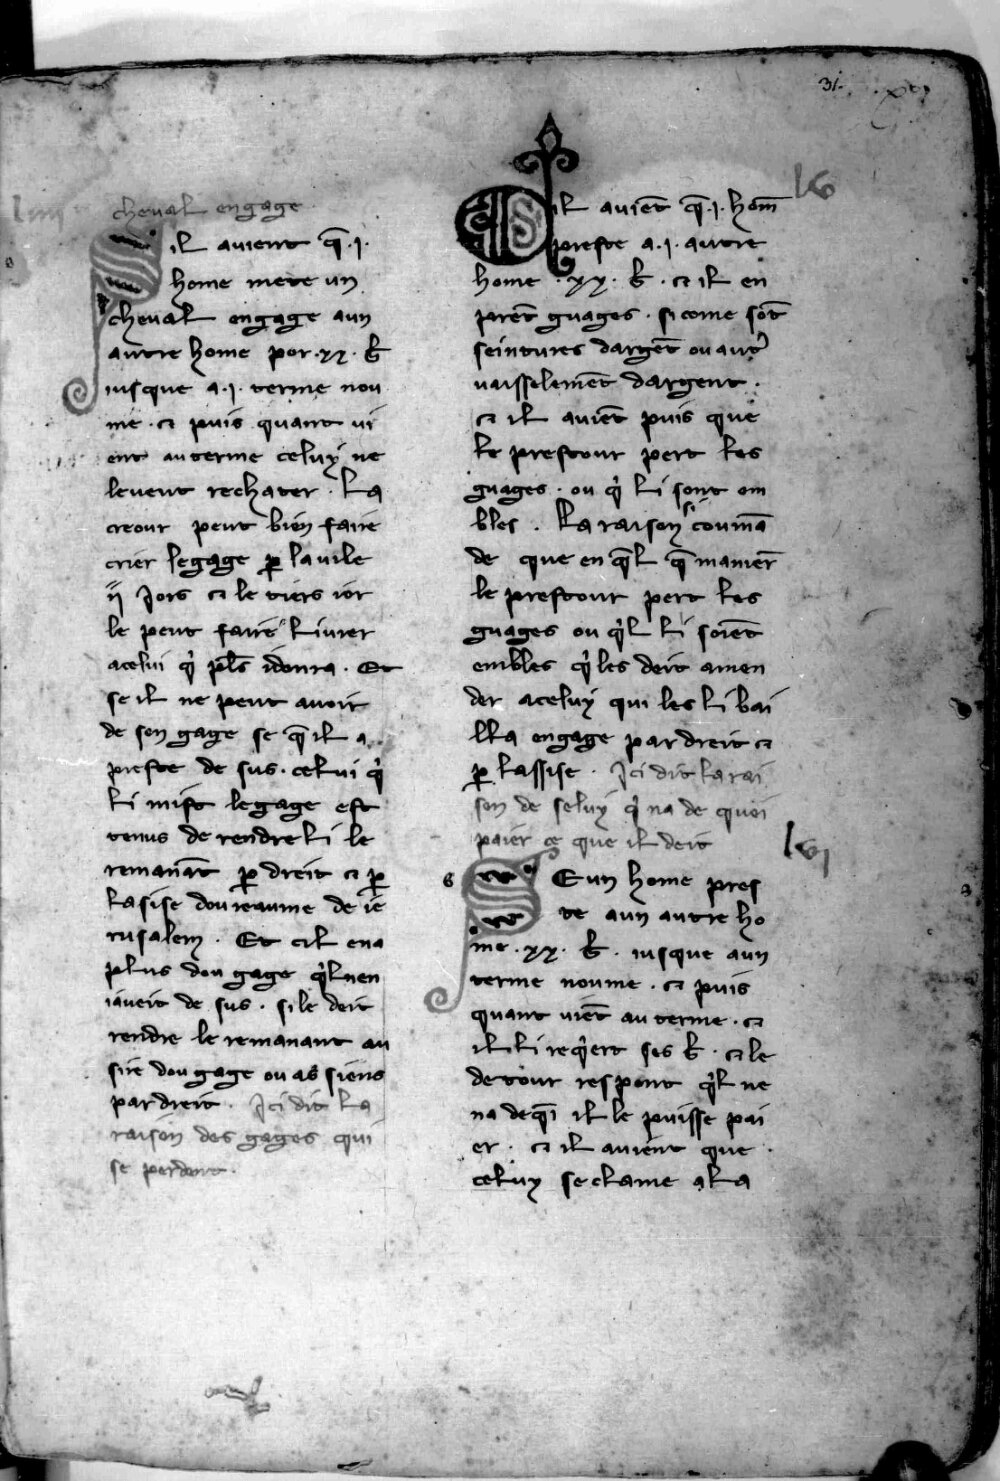 31.
cheval engage
Sil auient q̄ .j.
home mete un
cheval engage aun
autre home por .xx. ƀ
iusque a .j. terme nou
me . ⁊ puis quant ui
ent au terme celuy ne
leueut rechater . La
creour peut bien faire
crier legage ꝑ lauile
ij jors ⁊ le tiers ior
le peut faire liurer
acelui q̇ pl̄s idonra . Et
se il ne peut auoir
de son gage se q̄ il a
preste de sus . celui q̇
li mist legage est
tenus de rendre li le
remanāt ꝑ dreit ⁊ ꝑ
lasise dou reaume de ie
rusalem . Et cil ena
plus dou gage q̇l nen
iaueit de sus . si le deit
rendre le remanant au
sire dou gage ou as siens
par dreit . Ici dit la
raison des gages qui
se perdent .
lv
Sil auiēt q̄ .j. hom̄
preste a .j. autre
home . xx . ƀ . ⁊ il en
prēt guages . si come sōt
seintures dargēt ou autr̄
uaisselemēt dargent .
⁊ il auiēt puis que
le prestour pert les
guages . ou q̇ li sont em
bles . La raison si coumā
de que en q̄l q̄ manier̄
le prestour pert les
guages ou q̇l li soiēt
embles q̇ les deit amen
der aceluy qui les li bai
lla engage par dreit ⁊
ꝑ lassise . Ici dit la rai
son de seluy q̇ na de quoi
paier ce que il deit
lvj
SE un home pres
te aun autre ho
me . xx . ƀ . iusque aun
terme noume . ⁊ puis
quant uiēt au terme . ⁊
il li req̇ert ses ƀ . ⁊ le
detour respont q̇l ne
na deq̄i il le puisse pai
er . ⁊ il auient que
celuy se clame a la